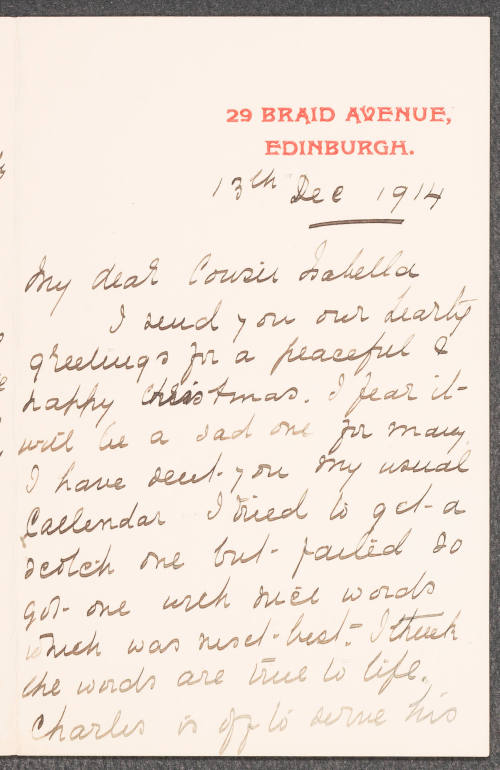 29 BRAID AVENUE,
EDINBURGH.
13th Dec 1914
My dear Cousin Isabella
I send you our hearty
greetings for a peaceful &
happy Christmas. I fear it
will be a sad one for many.
I have sent you my usual
Callendar I tried to get a
scotch one but failed so
got one with nice words
which was next best. I think
the words are true to life.
Charles is off to serve his